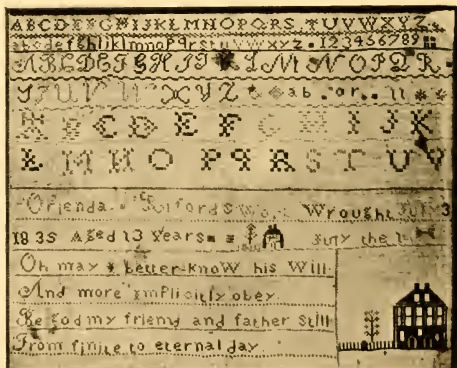 ABCDEFGHIJKLMNOPQRS TUVWXYZ
abcdefghijklmnopqrstuvwxyz 123456789
ABCDEFGHIJKLMNOPQR
TUVWXYZ
ABCDEFGHIJK
LMNOPQRSTUV
Orjenda Gulfords Work Wrought July
1835 Aged 13 Years July the
Oh may I better know his Will
And more implicitly obey
Be God my friend and father still
From finite to eternal day.